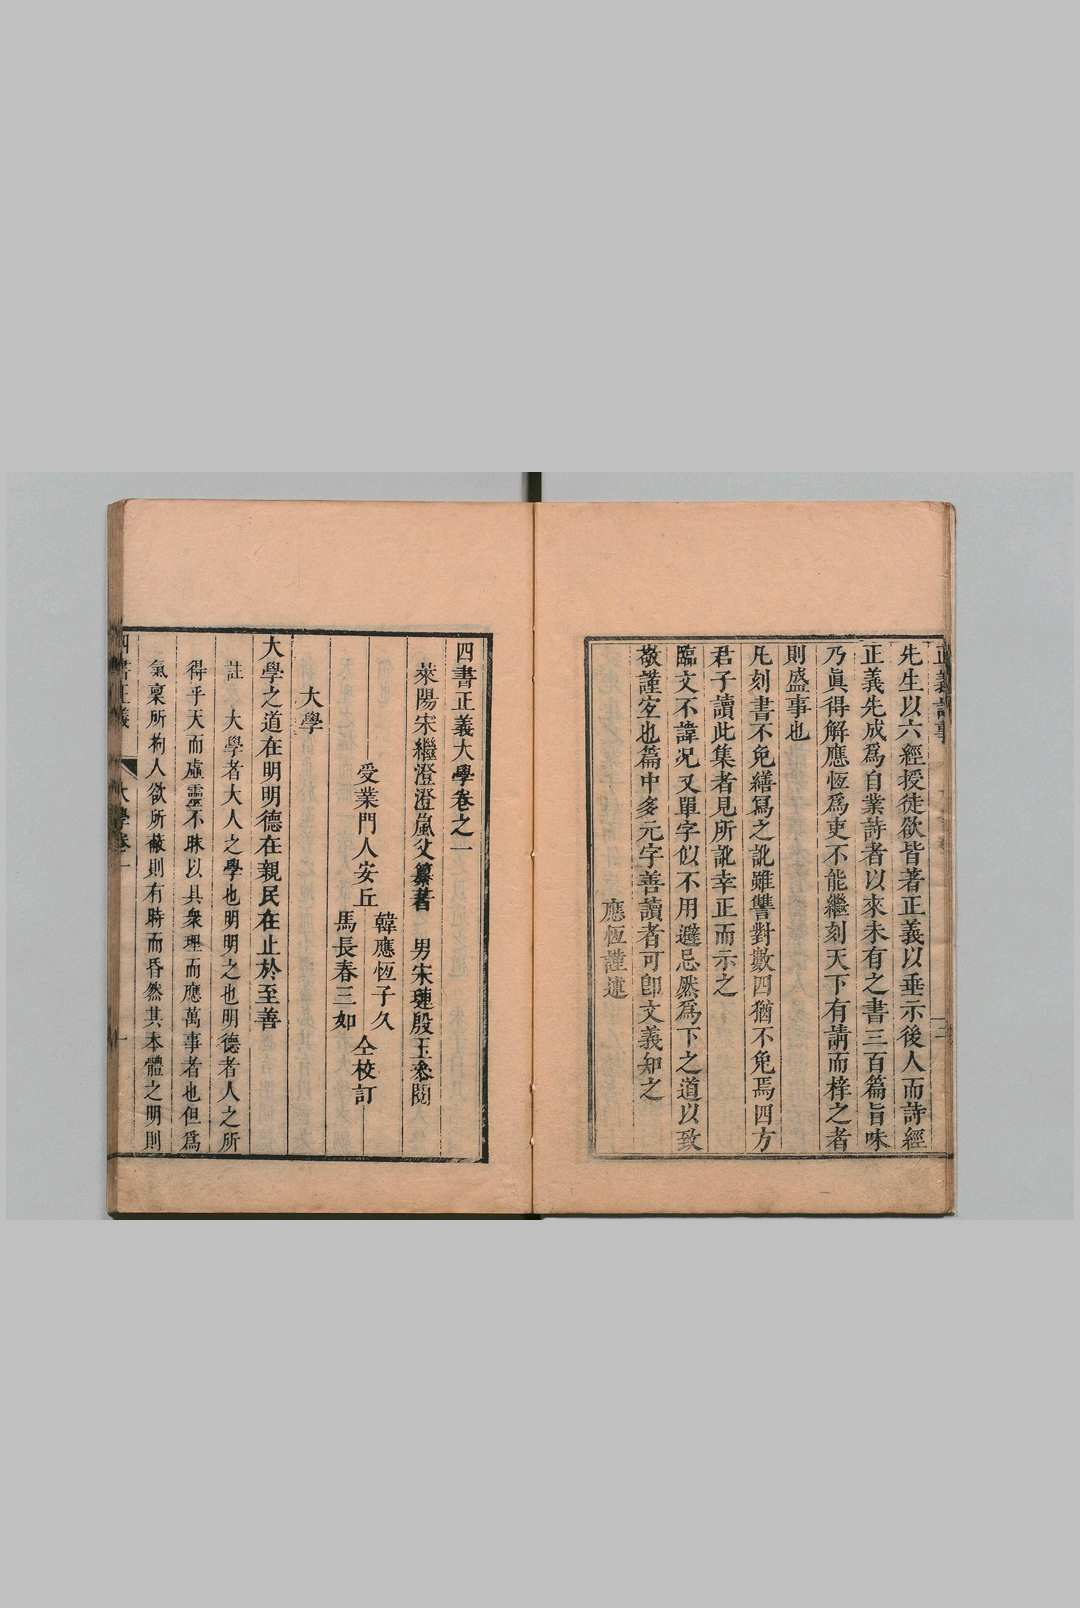 先生以六經授徒欲皆著正義以垂示後人而詩經
正義先成爲自業詩者以來未有之書三百篇旨味
乃眞得解應恆爲吏不能繼刻天下有請而梓之者
則盛事也
凡刻書不免繕寫之訛雖讐對數四猶不免焉四方
君子讀此集者見所訛幸正而示之
臨文不諱况又單字似不用避忌然爲下之道以致
敬謹宜也篇中多元字善讀者可卽文義知之
應恆謹述
四書正義大學卷之一
萊陽宋繼澄澄嵐父纂著 男宋璉殷玉叅閱
受業門人安丘 韓應恆子久 馬長春三如 仝校訂
大學
大學之道在明明德在親民在止於至善
註 大學者大人之學也明明之也明德者人之所
得乎天而虛靈不昧以具衆理而應萬事者也但爲
氣稟所拘人欲所蔽則有時而昏然其本體之明則
四書正義 大學卷一 一